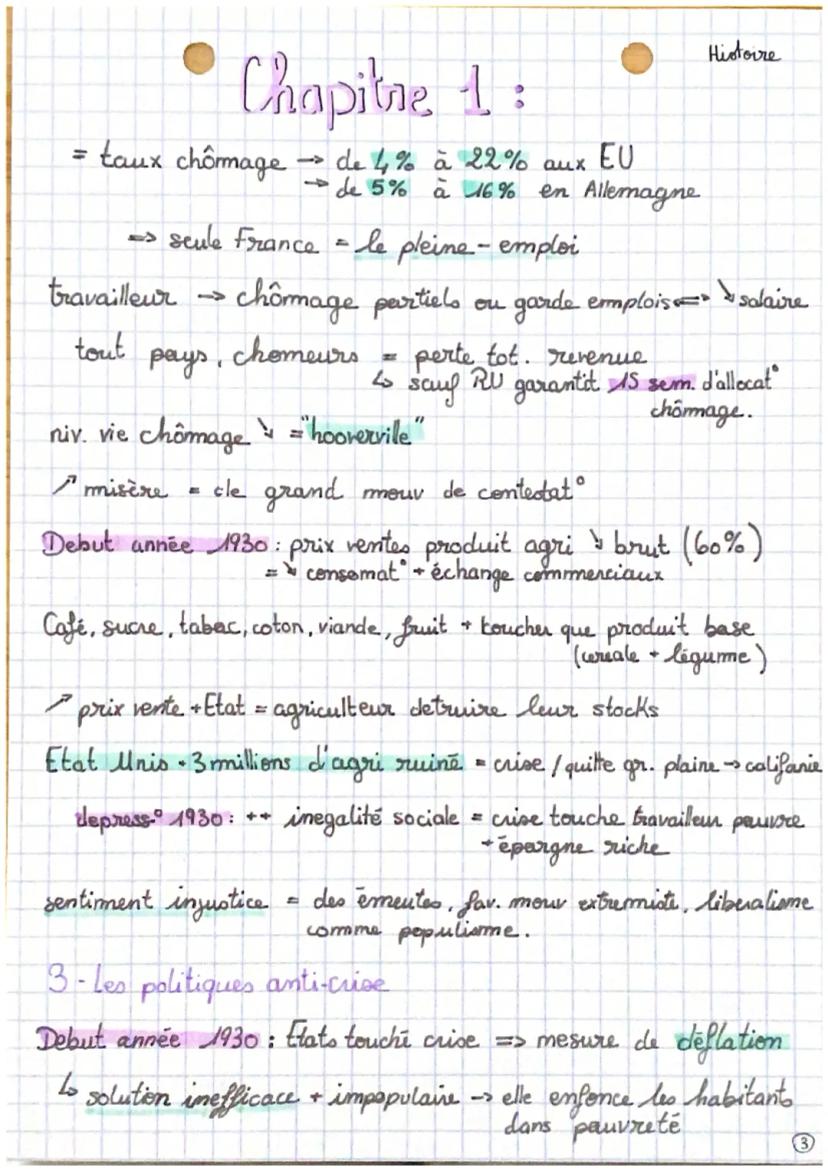 Histoire
Chapitre 1 :
= taux chômage → de 4% à 22% aux EU
→ de 5% à 16% en Allemagne
=> seule France = le pleine-emploi
travailleur → chômage partiels ou garde emplois <=> ↘ salaire
tout pays, chomeurs = perte tot. revenue
↳ sauf RU garantit 15 sem. d'allocat°
chômage.
niv. vie chômage ↘ = "hooverville"
↗ misère = de grand mouv de contestat°
Debut année 1930 : prix ventes produit agri ↘ brut (60%)
= ↘ consomat° + échange commerciaux
Café, sucre, tabac, coton, viande, fruit + toucher que produit base
(cereale + légume)
↗ prix vente + Etat = agriculteur detruire leur stocks
Etat Unis • 3 millions d'agri ruiné = crise / quitte gr. plaine → califonie
depress° 1930 : ++ inegalité sociale = crise touche travailleur pauvre
+ épargne riche
sentiment injustice = des émeutes, fav. mouv extrumiste, liberalisme
comme populisme.
3 - Les politiques anti-crise
Debut année 1930 : États touché crise => mesure de déflation
↳ solution inefficace + impopulaire → elle enfonce les habitants
dans pauvreté
3